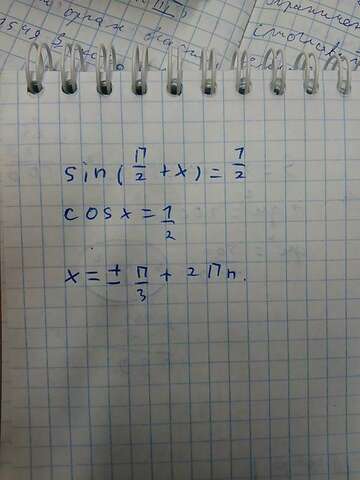 sin(π/2 + x) = 1/2
cosx = 1/2
x = ± π/3 + 2πn.